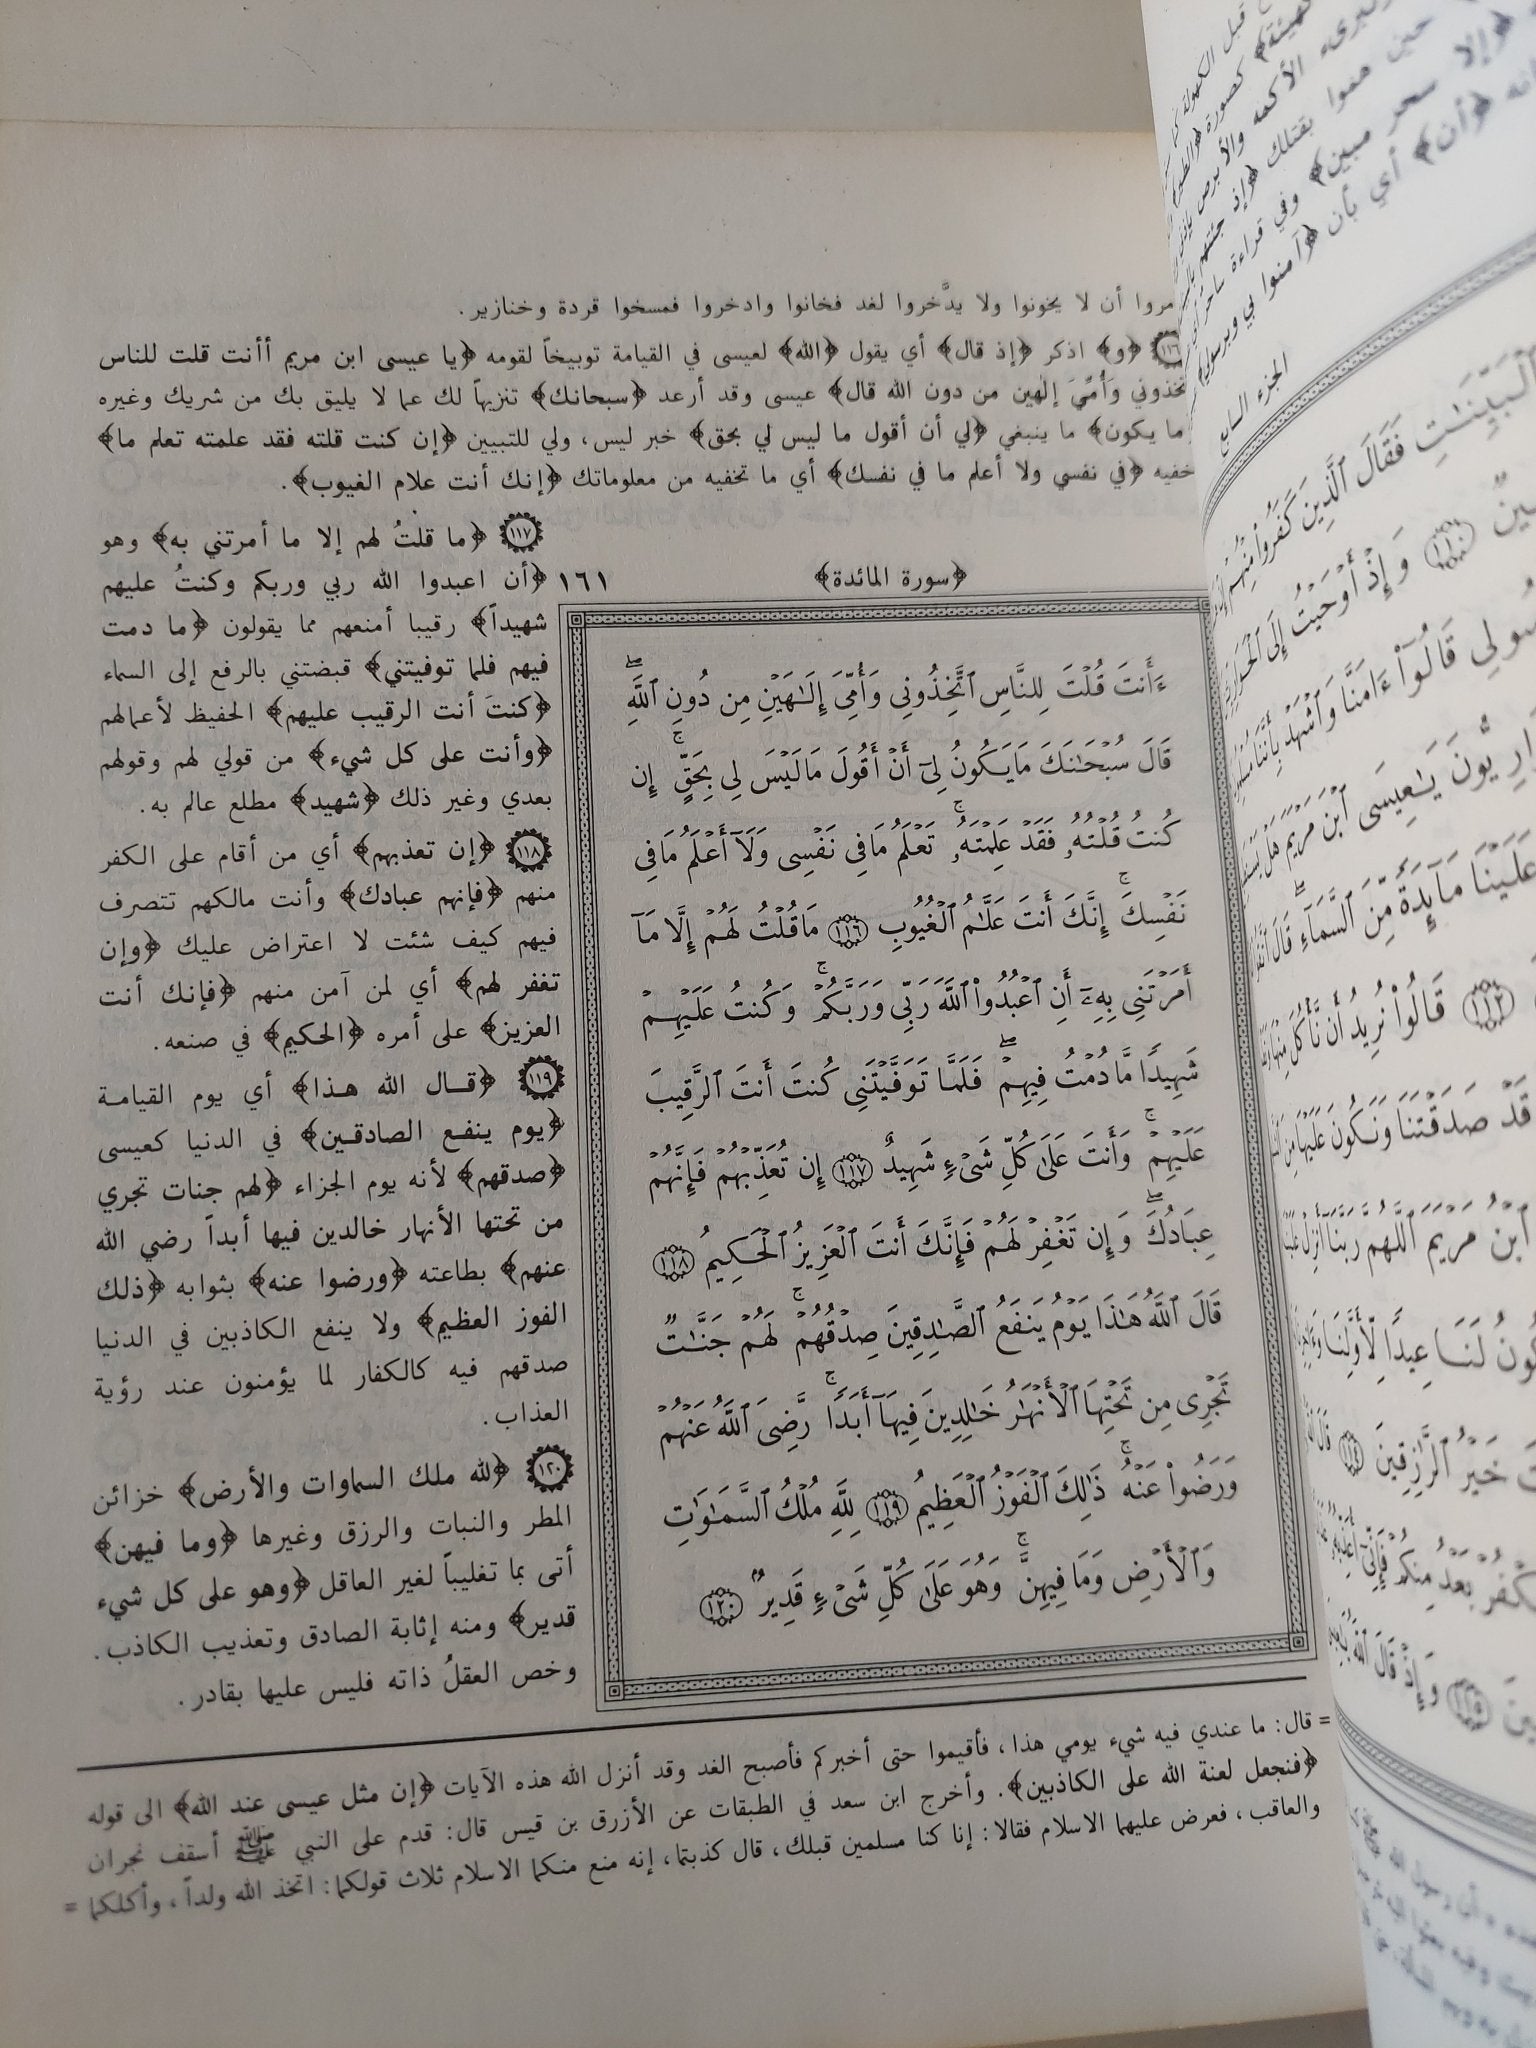 مروا أن لا يخونوا ولا يدَّخروا لغد فخانوا وادخروا فمسخوا قردة وخنازير.
١١٦ ﴿و﴾ اذكر ﴿إذ قال﴾ أي يقول ﴿الله﴾ لعيسى في القيامة توبيخاً لقومه ﴿يا عيسى ابن مريم أأنت قلت للناس
تخذوني وَأُمِّيَ إلهين من دون الله قال﴾ عيسى وقد أرعد ﴿سبحانك﴾ تنزيهاً لك عما لا يليق بك من شريك وغيره
ما يكون﴾ ما ينبغي ﴿لي أن أقول ما ليس لي بحق﴾ خبر ليس، ولي للتبيين ﴿إن كنت قلته فقد علمته تعلم ما﴾
خفيه ﴿في نفسي ولا أعلم ما في نفسك﴾ أي ما تخفيه من معلوماتك ﴿إنك أنت علام الغيوب﴾.
١١٧ ﴿ما قلتُ لهم إلا ما أمرتني به﴾ وهو
﴿أن اعبدوا الله ربي وربكم وكنتُ عليهم
شهيداً﴾ رقيبا أمنعهم مما يقولون ﴿ما دمت
فيهم فلما توفيتني﴾ قبضتني بالرفع إلى السماء
﴿كنتَ أنت الرقيب عليهم﴾ الحفيظ لأعمالهم
﴿وأنت على كل شيء﴾ من قولي لهم وقولهم
بعدي وغير ذلك ﴿شهيد﴾ مطلع عالم به.
١١٨ ﴿إن تعذبهم﴾ أي من أقام على الكفر
منهم ﴿فإنهم عبادك﴾ وأنت مالكهم تتصرف
فيهم كيف شئت لا اعتراض عليك ﴿وإن
تغفر لهم﴾ أي لمن آمن منهم ﴿فإنك أنت
العزيز﴾ على أمره ﴿الحكيم﴾ في صنعه.
١١٩ ﴿قال الله هذا﴾ أي يوم القيامة
﴿يوم ينفع الصادقين﴾ في الدنيا كعيسى
﴿صدقهم﴾ لأنه يوم الجزاء ﴿لهم جنات تجري
من تحتها الأنهار خالدين فيها أبداً رضي الله
عنهم﴾ بطاعته ﴿ورضوا عنه﴾ بثوابه ﴿ذلك
الفوز العظيم﴾ ولا ينفع الكاذبين في الدنيا
صدقهم فيه كالكفار لما يؤمنون عند رؤية
العذاب.
١٢٠ ﴿لله ملك السماوات والأرض﴾ خزائن
المطر والنبات والرزق وغيرها ﴿وما فيهن﴾
أتى بما تغليباً لغير العاقل ﴿وهو على كل شيء
قدير﴾ ومنه إثابة الصادق وتعذيب الكاذب.
وخص العقلُ ذاته فليس عليها بقادر.
﴿سورة المائدة﴾ ١٦١
ءَأَنتَ قُلْتَ لِلنَّاسِ ٱتَّخِذُونِى وَأُمِّىَ إِلَـٰهَيْنِ مِن دُونِ ٱللَّهِۖ
قَالَ سُبْحَـٰنَكَ مَا يَكُونُ لِىٓ أَنْ أَقُولَ مَا لَيْسَ لِى بِحَقٍّۚ إِن
كُنتُ قُلْتُهُۥ فَقَدْ عَلِمْتَهُۥۚ تَعْلَمُ مَا فِى نَفْسِى وَلَآ أَعْلَمُ مَا فِى
نَفْسِكَۚ إِنَّكَ أَنتَ عَلَّـٰمُ ٱلْغُيُوبِ ١١٦ مَا قُلْتُ لَهُمْ إِلَّا مَآ
أَمَرْتَنِى بِهِۦٓ أَنِ ٱعْبُدُوا۟ ٱللَّهَ رَبِّى وَرَبَّكُمْۚ وَكُنتُ عَلَيْهِمْ
شَهِيدًا مَّا دُمْتُ فِيهِمْۖ فَلَمَّا تَوَفَّيْتَنِى كُنتَ أَنتَ ٱلرَّقِيبَ
عَلَيْهِمْۚ وَأَنتَ عَلَىٰ كُلِّ شَىْءٍ شَهِيدٌ ١١٧ إِن تُعَذِّبْهُمْ فَإِنَّهُمْ
عِبَادُكَۖ وَإِن تَغْفِرْ لَهُمْ فَإِنَّكَ أَنتَ ٱلْعَزِيزُ ٱلْحَكِيمُ ١١٨
قَالَ ٱللَّهُ هَـٰذَا يَوْمُ يَنفَعُ ٱلصَّـٰدِقِينَ صِدْقُهُمْۚ لَهُمْ جَنَّـٰتٌ
تَجْرِى مِن تَحْتِهَا ٱلْأَنْهَـٰرُ خَـٰلِدِينَ فِيهَآ أَبَدًاۚ رَّضِىَ ٱللَّهُ عَنْهُمْ
وَرَضُوا۟ عَنْهُۚ ذَٰلِكَ ٱلْفَوْزُ ٱلْعَظِيمُ ١١٩ لِلَّهِ مُلْكُ ٱلسَّمَـٰوَٰتِ
وَٱلْأَرْضِ وَمَا فِيهِنَّۚ وَهُوَ عَلَىٰ كُلِّ شَىْءٍ قَدِيرٌۢ ١٢٠
= قال: ما عندي فيه شيء يومي هذا، فأقيموا حتى أخبركم فأصبح الغد وقد أنزل الله هذه الآيات ﴿إن مثل عيسى عند الله﴾ الى قوله
﴿فنجعل لعنة الله على الكاذبين﴾. وأخرج ابن سعد في الطبقات عن الأزرق بن قيس قال: قدم على النبي ﷺ أسقف نجران
والعاقب، فعرض عليهما الاسلام فقالا: إنا كنا مسلمين قبلك، قال كذبتما، إنه منع منكما الاسلام ثلاث قولكما: اتخذ الله ولداً، وأكلكما =
قبل الكهولة كما
كصورة ﴿الطير
وتبرىء الأكمه والأبرص بإذني
حين هموا بقتلك ﴿إذ جئتهم
﴿إلا سحر مبين﴾ وفي قراءة ساحر
﴿أن﴾ أي بأن ﴿آمنوا بي وبرسولي
الجزء السابع
ٱلْبَيِّنَـٰتِ فَقَالَ ٱلَّذِينَ كَفَرُوا۟ مِنْهُمْ
١١٠ وَإِذْ أَوْحَيْتُ إِلَى ٱلْحَوَارِيِّـۧنَ
قَالُوٓا۟ ءَامَنَّا وَٱشْهَدْ بِأَنَّنَا
يَـٰعِيسَى ٱبْنَ مَرْيَمَ هَلْ
عَلَيْنَا مَآئِدَةً مِّنَ ٱلسَّمَآءِۖ قَالَ
١١٢ قَالُوا۟ نُرِيدُ أَن نَّأْكُلَ مِنْهَا
قَدْ صَدَقْتَنَا وَنَكُونَ عَلَيْهَا مِنَ
ٱبْنُ مَرْيَمَ ٱللَّهُمَّ رَبَّنَآ أَنزِلْ عَلَيْنَا
لَنَا عِيدًا لِّأَوَّلِنَا
خَيْرُ ٱلرَّٰزِقِينَ ١١٤ قَالَ
بَعْدُ مِنكُمْ فَإِنِّىٓ أُعَذِّبُهُۥ
١١٥ وَإِذْ قَالَ ٱللَّهُ